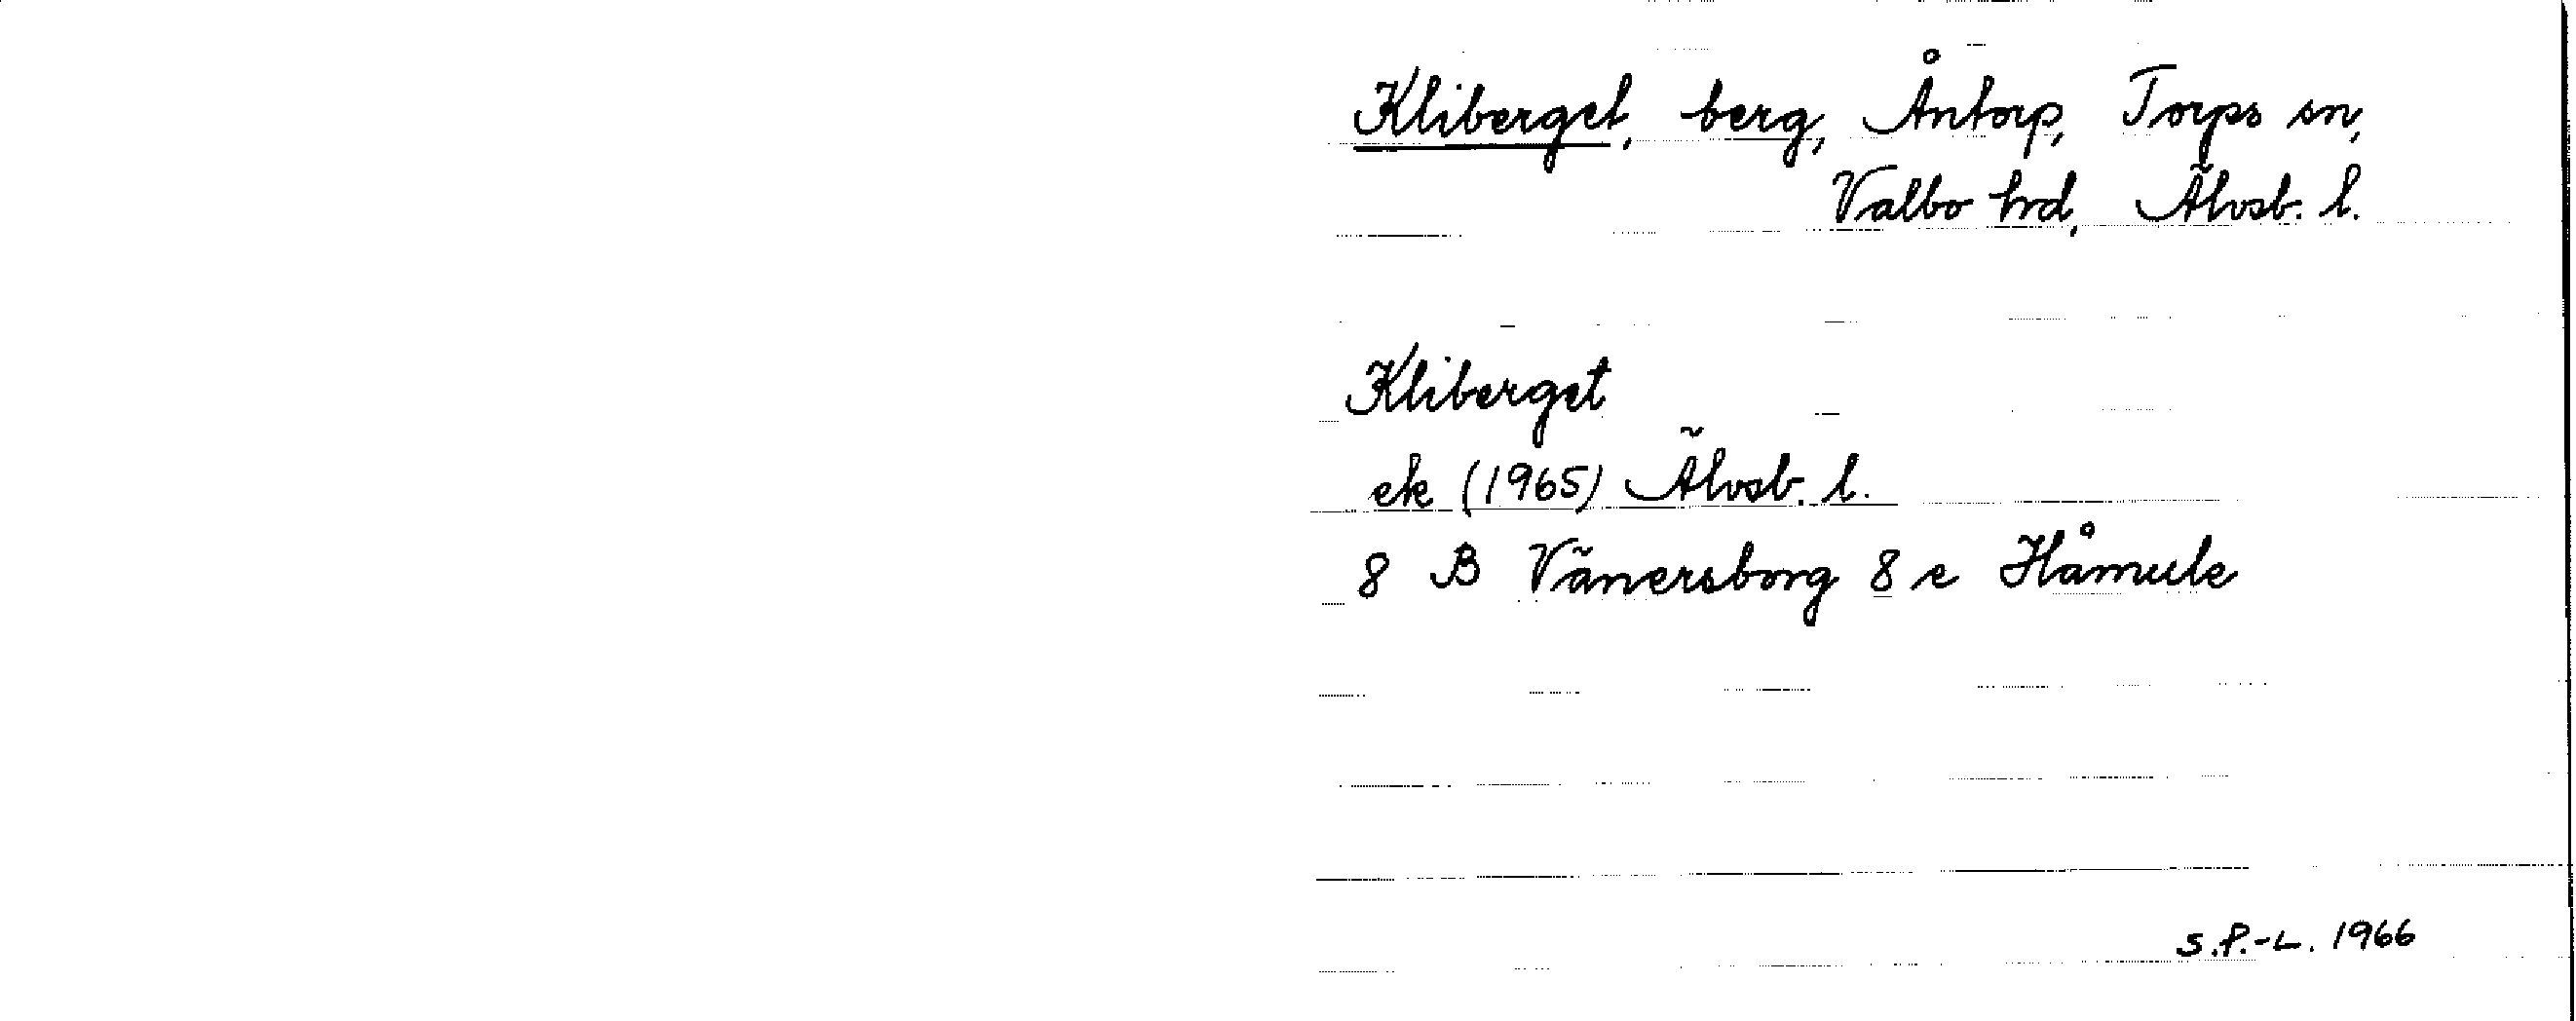 Kliberget, berg, Åntorp, Torps sn,
Valbo hd, Älvsb. l.
Kliberget
ek (1965) Älvsb. l.
8 B Vänersborg 8 e Håmule
S.P.-L. 1966